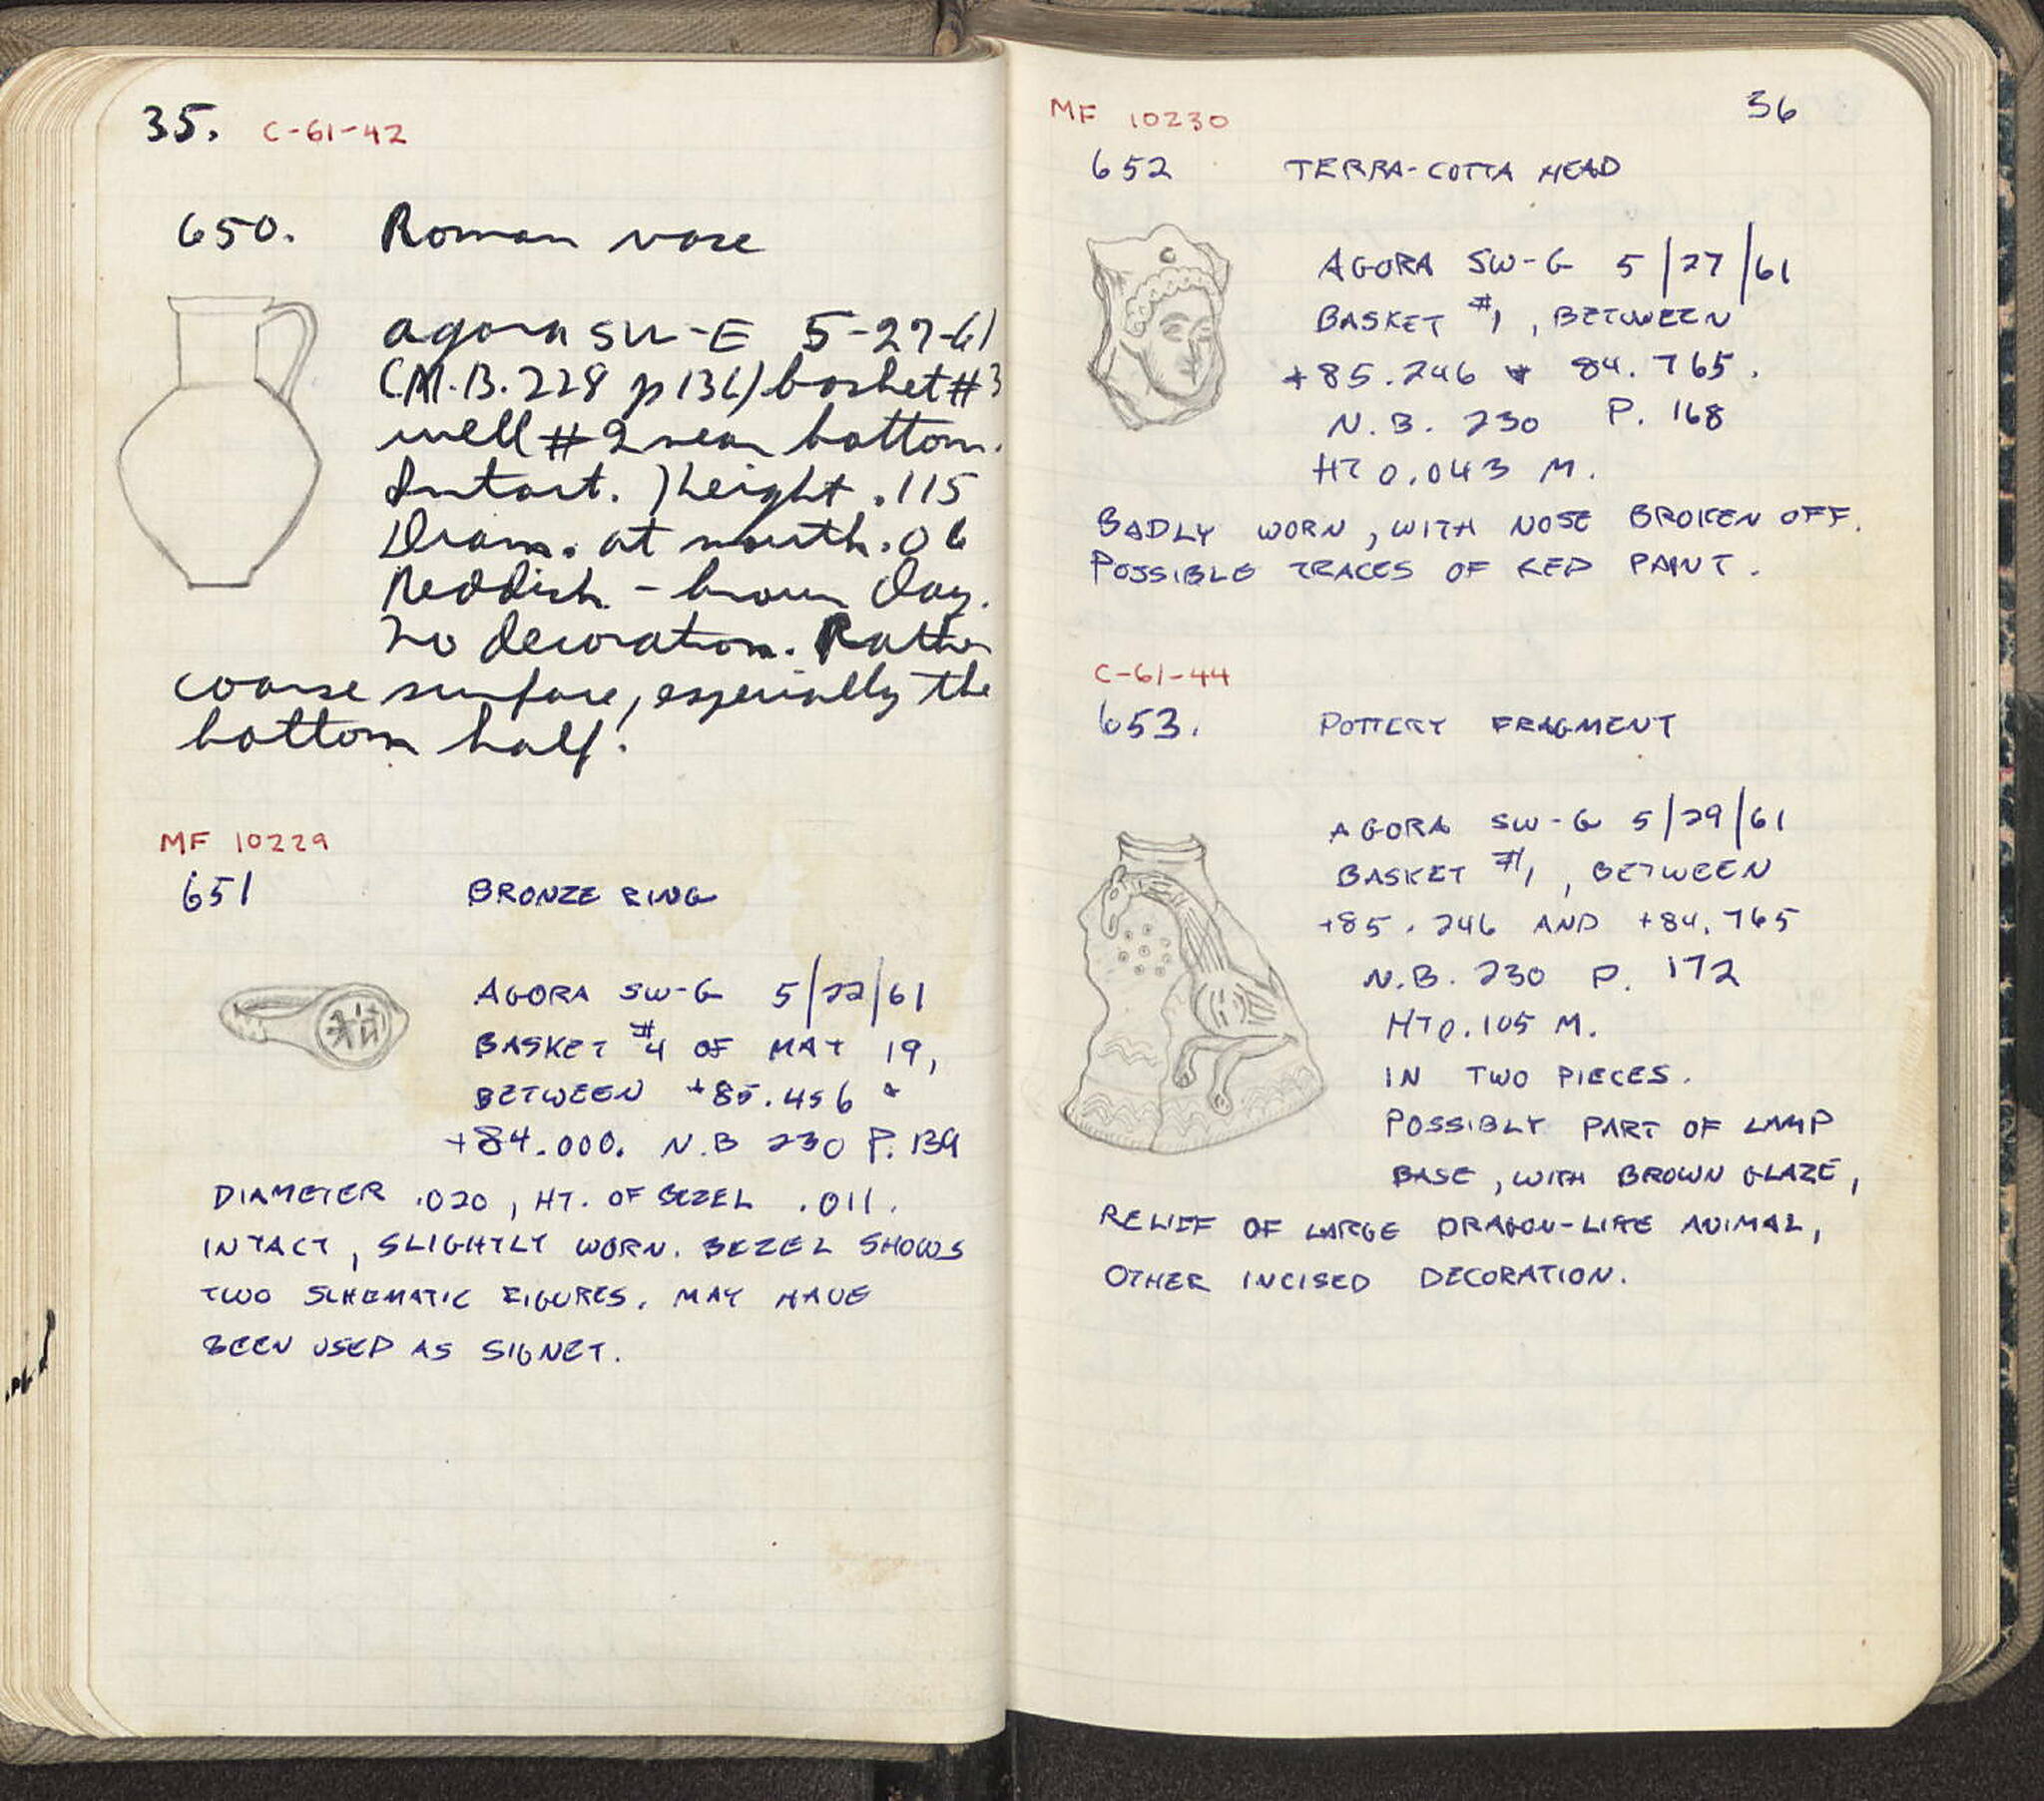 35. C-61-42
650. Roman vase
agora SW-E 5-27-61
(N.B. 228 p 136) basket #3
well #2 near bottom.
Intact. Height .115
Diam. at mouth .06
Reddish-brown clay.
No decoration. Rather
coarse surface, especially the
bottom half.
MF 10229
651 BRONZE RING
AGORA SW-G 5/22/61
BASKET #4 OF MAY 19,
BETWEEN +85.456 &
+84.000. N.B 230 P. 139
DIAMETER .020, HT. OF BEZEL .011.
INTACT, SLIGHTLY WORN. BEZEL SHOWS
TWO SCHEMATIC FIGURES. MAY HAVE
BEEN USED AS SIGNET.
36
MF 10230
652 TERRA-COTTA HEAD
AGORA SW-G 5/27/61
BASKET #1, BETWEEN
+85.246 & 84.765.
N.B. 230 P. 168
HT 0.043 M.
BADLY WORN, WITH NOSE BROKEN OFF.
POSSIBLE TRACES OF RED PAINT.
C-61-44
653. POTTERY FRAGMENT
AGORA SW-G 5/29/61
BASKET #1, BETWEEN
+85.246 AND +84.765
N.B. 230 P. 172
HT 0.105 M.
IN TWO PIECES.
POSSIBLY PART OF LAMP
BASE, WITH BROWN GLAZE,
RELIEF OF LARGE DRAGON-LIKE ANIMAL,
OTHER INCISED DECORATION.